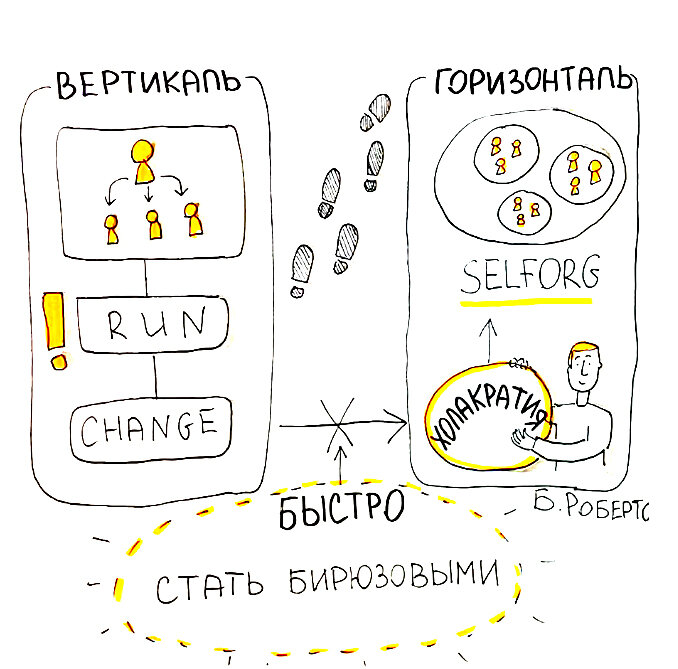 ВЕРТИКАЛЬ
!
RUN
CHANGE
ГОРИЗОНТАЛЬ
SELFORG
ХОЛАКРАТИЯ
Б. РОБЕРТС
БЫСТРО
СТАТЬ БИРЮЗОВЫМИ